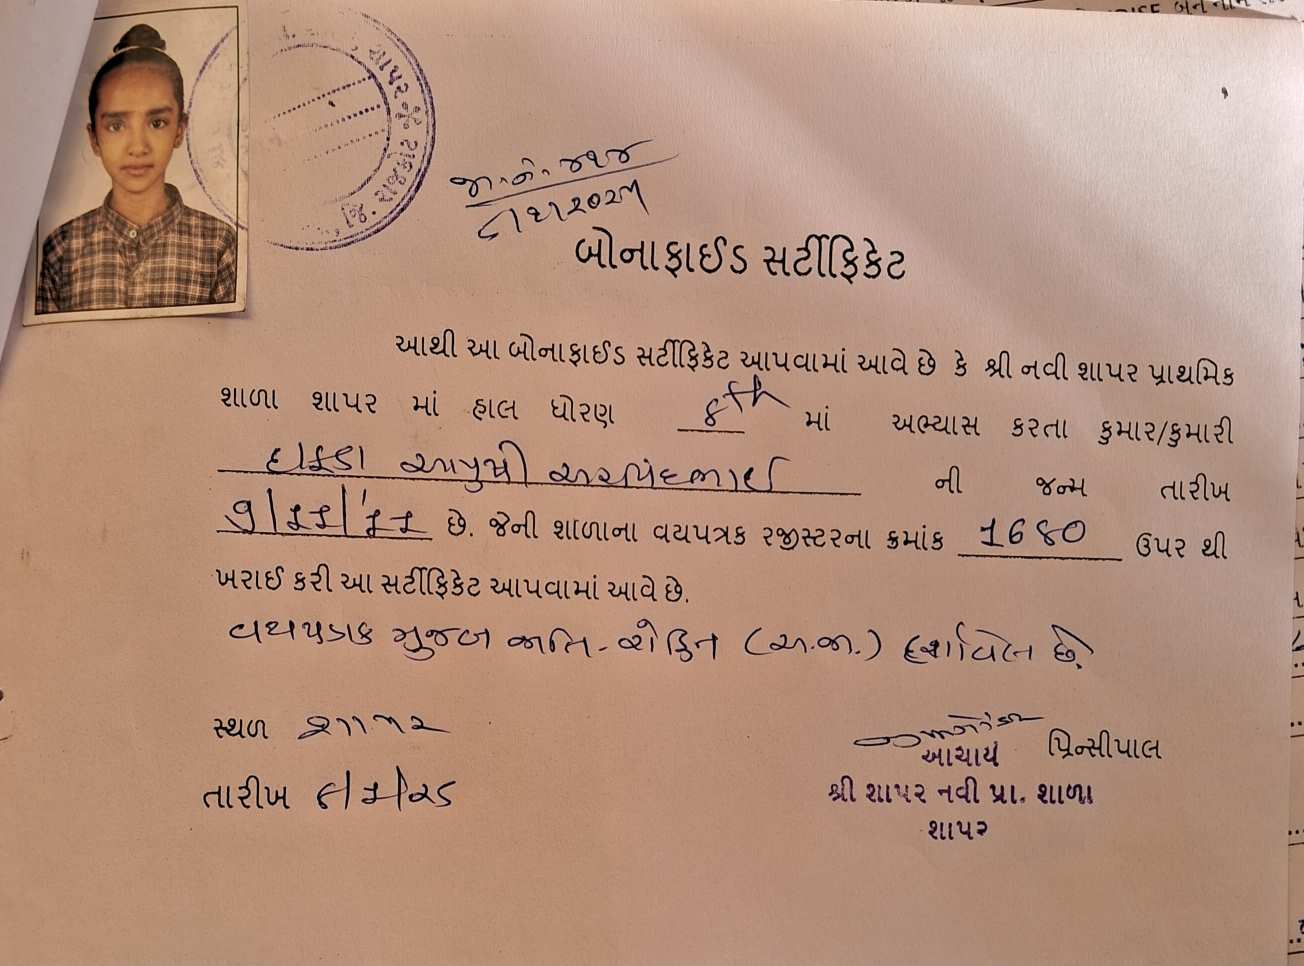 શાપર
બોનાફાઈડ સર્ટીફિકેટ
આથી આ બોનાફાઈડ સર્ટીફિકેટ આપવામાં આવે છે કે શ્રી નવી શાપર પ્રાથમિક
શાળા શાપર માં હાલ ધોરણ 8th માં અભ્યાસ કરતા કુમાર/કુમારી
દાફડા આયુષી અરવિંદભાઈ ની જન્મ તારીખ
છે. જેની શાળાના વયપત્રક રજીસ્ટરના ક્રમાંક 1680 ઉપર થી
ખરાઈ કરી આ સર્ટીફિકેટ આપવામાં આવે છે.
વયપત્રક મુજબ જાતિ - રોહિત (અ.જા.) દર્શાવેલ છે.
સ્થળ શાપર
પ્રિન્સીપાલ
આચાર્ય
તારીખ
શ્રી શાપર નવી પ્રા. શાળા
શાપર